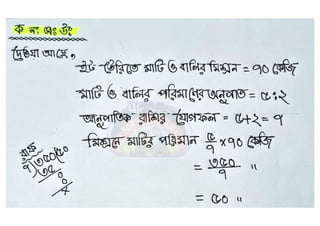 ক নং প্রঃ উঃ
দেওয়া আছে,
ইট তৈরিতে মাটি ও বালির মিশ্রন = ৭০ কেজি
মাটি ও বালির পরিমানের অনুপাত = ৫:২
আনুপাতিক রাশির যোগফল = ৫+২ = ৭
মিশ্রনে মাটির পরিমান ৫/৭ × ৭০ কেজি
= ৩৫০/৭ "
= ৫০ "
৭)৩৫০(৫০
৩৫
০
০
×